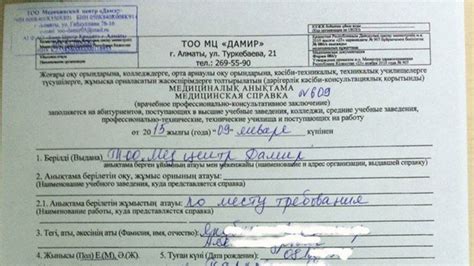 ТОО Медицинский центр «Дамир»
ТОО МЦ «ДАМИР»
г. Алматы, ул. Туркебаева, 21
тел.: 269-55-90
Жоғары оқу орындарына, колледждерге, орта арнаулы оқу орындарына, кәсіби-техникалық, техникалық училищелерге
түсушілерге, жұмысқа орналасатын жасөспірімдерге толтырылатын (дәрігерлік кәсіби-консультациялық қорытынды)
МЕДИЦИНАЛЫҚ АНЫҚТАМА
МЕДИЦИНСКАЯ СПРАВКА №609
(врачебное профессионально-консультативное заключение)
заполняется на абитуриентов, поступающих в высшие учебные заведения, колледжи, средние учебные заведения,
профессионально-технические, технические училища и поступающих на работу
от 2015 жылғы (года) «09» января күнінен
1. Берілді (Выдана) ТОО Мед центр Дамир
анықтама берген ұйымның атауы мен мекенжайы (наименование и адрес организации, выдавшей справку)
2. Анықтама берілетін оқу, жұмыс орнының атауы:
(Наименование учебного заведения, куда представляется справка)
2.1. Анықтама берілетін жұмыстың атауы: по месту требования
(Наименование работы, куда представляется справка)
3. Тегі, аты, әкесінің аты (Фамилия, имя, отчество)
4. Жынысы (Пол) Е.(М), Ә.(Ж) 5. Туған күні (Дата рождения)